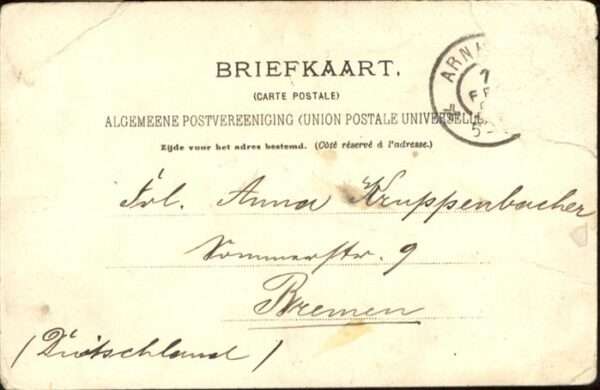 BRIEFKAART.
(CARTE POSTALE)
ALGEMEENE POSTVEREENIGING (UNION POSTALE UNIVERSELLE)
Zijde voor het adres bestemd. (Côté réservé à l'adresse.)
Frl. Anna Kruppenbacher
Sommerstr. 9
Bremen
(Duitschland)
ARN